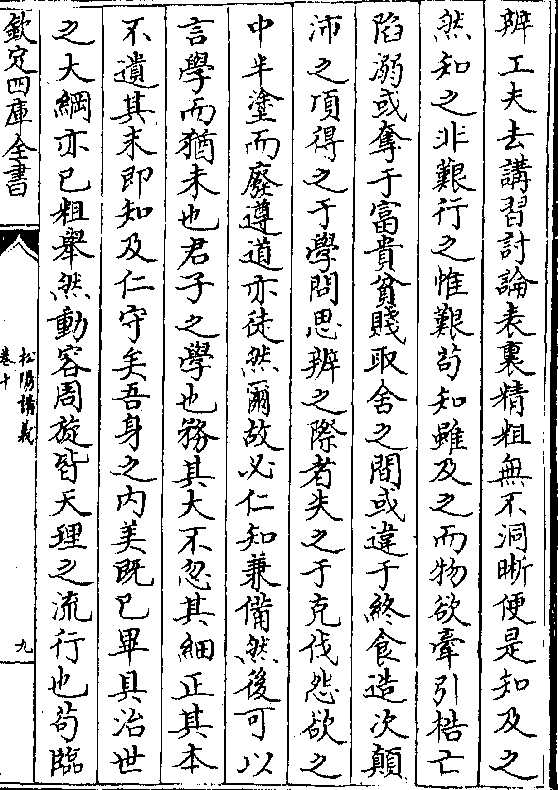 辨工夫去講習討論表裏精粗無不洞晰便是知及之
然知之非艱行之惟艱茍知雖及之而物欲牽引梏亡
陷溺或奪于富貴貧賤取舍之間或違于終食造次顛
沛之項得之于學問思辨之際者失之于克伐怨欲之
中半塗而廢遵道亦徒然爾故必仁知兼備然後可以
言學而猶未也君子之學也務其大不忽其細正其本
不遺其末即知及仁守矣吾身之内美既已畢具冶世
之大綱亦已粗舉然動容周旋皆天理之流行也茍臨
欽定四庫全書
松陽講義
卷十
九